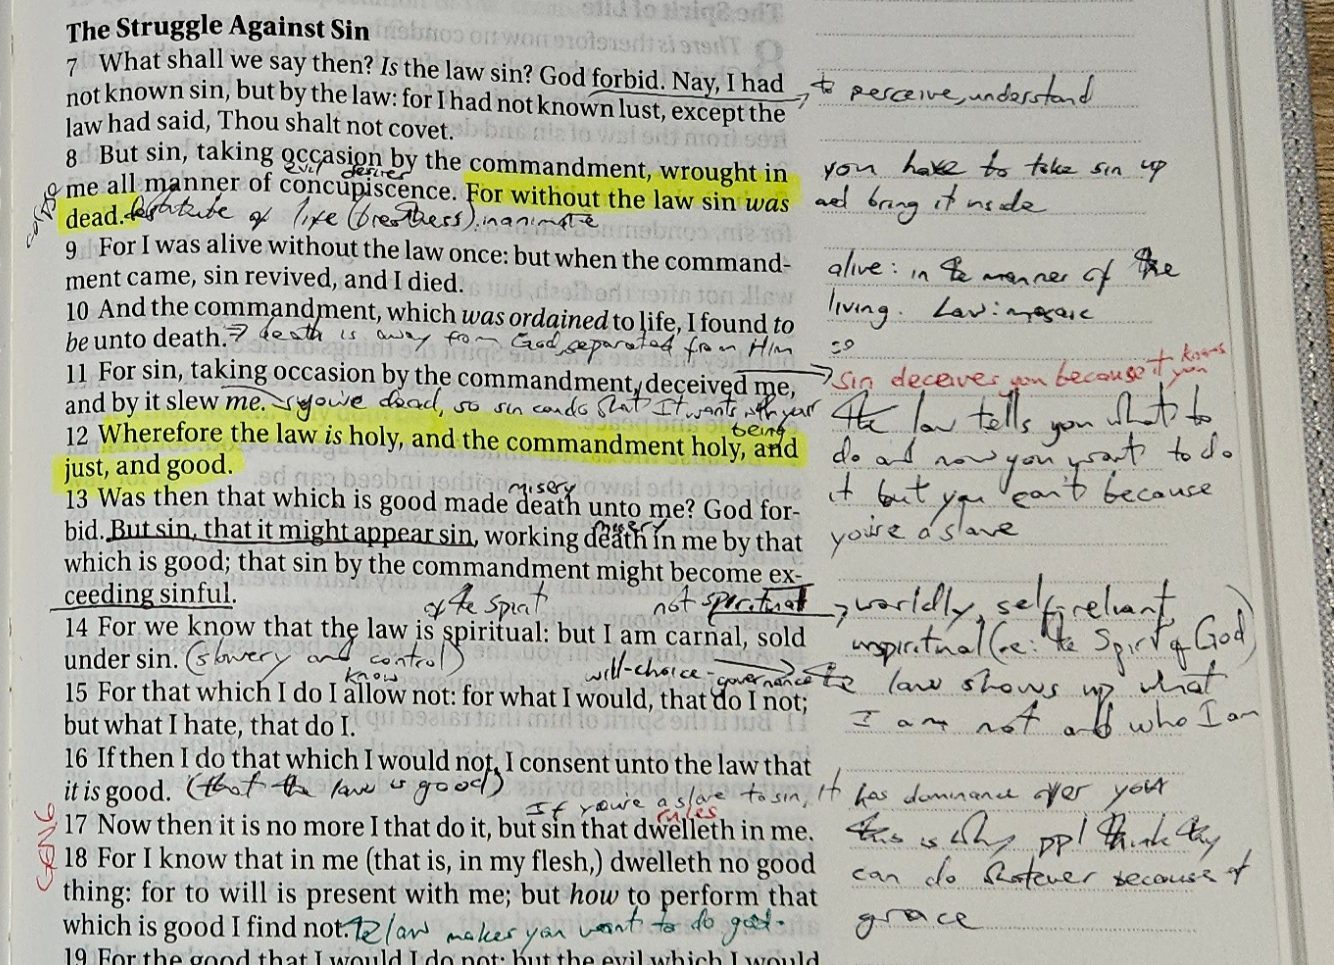 The Struggle Against Sin
7 What shall we say then? Is the law sin? God forbid. Nay, I had
not known sin, but by the law: for I had not known lust, except the
law had said, Thou shalt not covet.
to perceive, understand
8 But sin, taking occasion by the commandment, wrought in
evil desires
me all manner of concupiscence. For without the law sin was
dead. destitute of life (breathless), inanimate
corpse
you have to take sin up
and bring it inside
9 For I was alive without the law once: but when the command-
ment came, sin revived, and I died.
alive: in the manner of the
living. Law: mosaic
10 And the commandment, which was ordained to life, I found to
be unto death. → death is away from God, separated from Him
11 For sin, taking occasion by the commandment, deceived me,
and by it slew me. you're dead, so sin can do what it wants with your
being
sin deceives you because it knows
you
12 Wherefore the law is holy, and the commandment holy, and
just, and good.
the law tells you what to
do and now you want to do
it but you can't because
you're a slave
misery
13 Was then that which is good made death unto me? God for-
misery
bid. But sin, that it might appear sin, working death in me by that
which is good; that sin by the commandment might become ex-
ceeding sinful.
of the spirit
not spiritual → worldly, self-reliant,
unspiritual (re: the Spirit of God)
14 For we know that the law is spiritual: but I am carnal, sold
under sin. (slavery and control)
know
will-choice - governance
the law shows up what
I am not and who I am
15 For that which I do I allow not: for what I would, that do I not;
but what I hate, that do I.
16 If then I do that which I would not, I consent unto the law that
it is good. (that the law is good)
If you're a slave to sin, it has dominance over you
rules
17 Now then it is no more I that do it, but sin that dwelleth in me.
18 For I know that in me (that is, in my flesh,) dwelleth no good
thing: for to will is present with me; but how to perform that
which is good I find not. the law makes you want to do good.
this is why ppl think they
can do whatever because of
grace
19 For the good that I would I do not: but the evil which I would